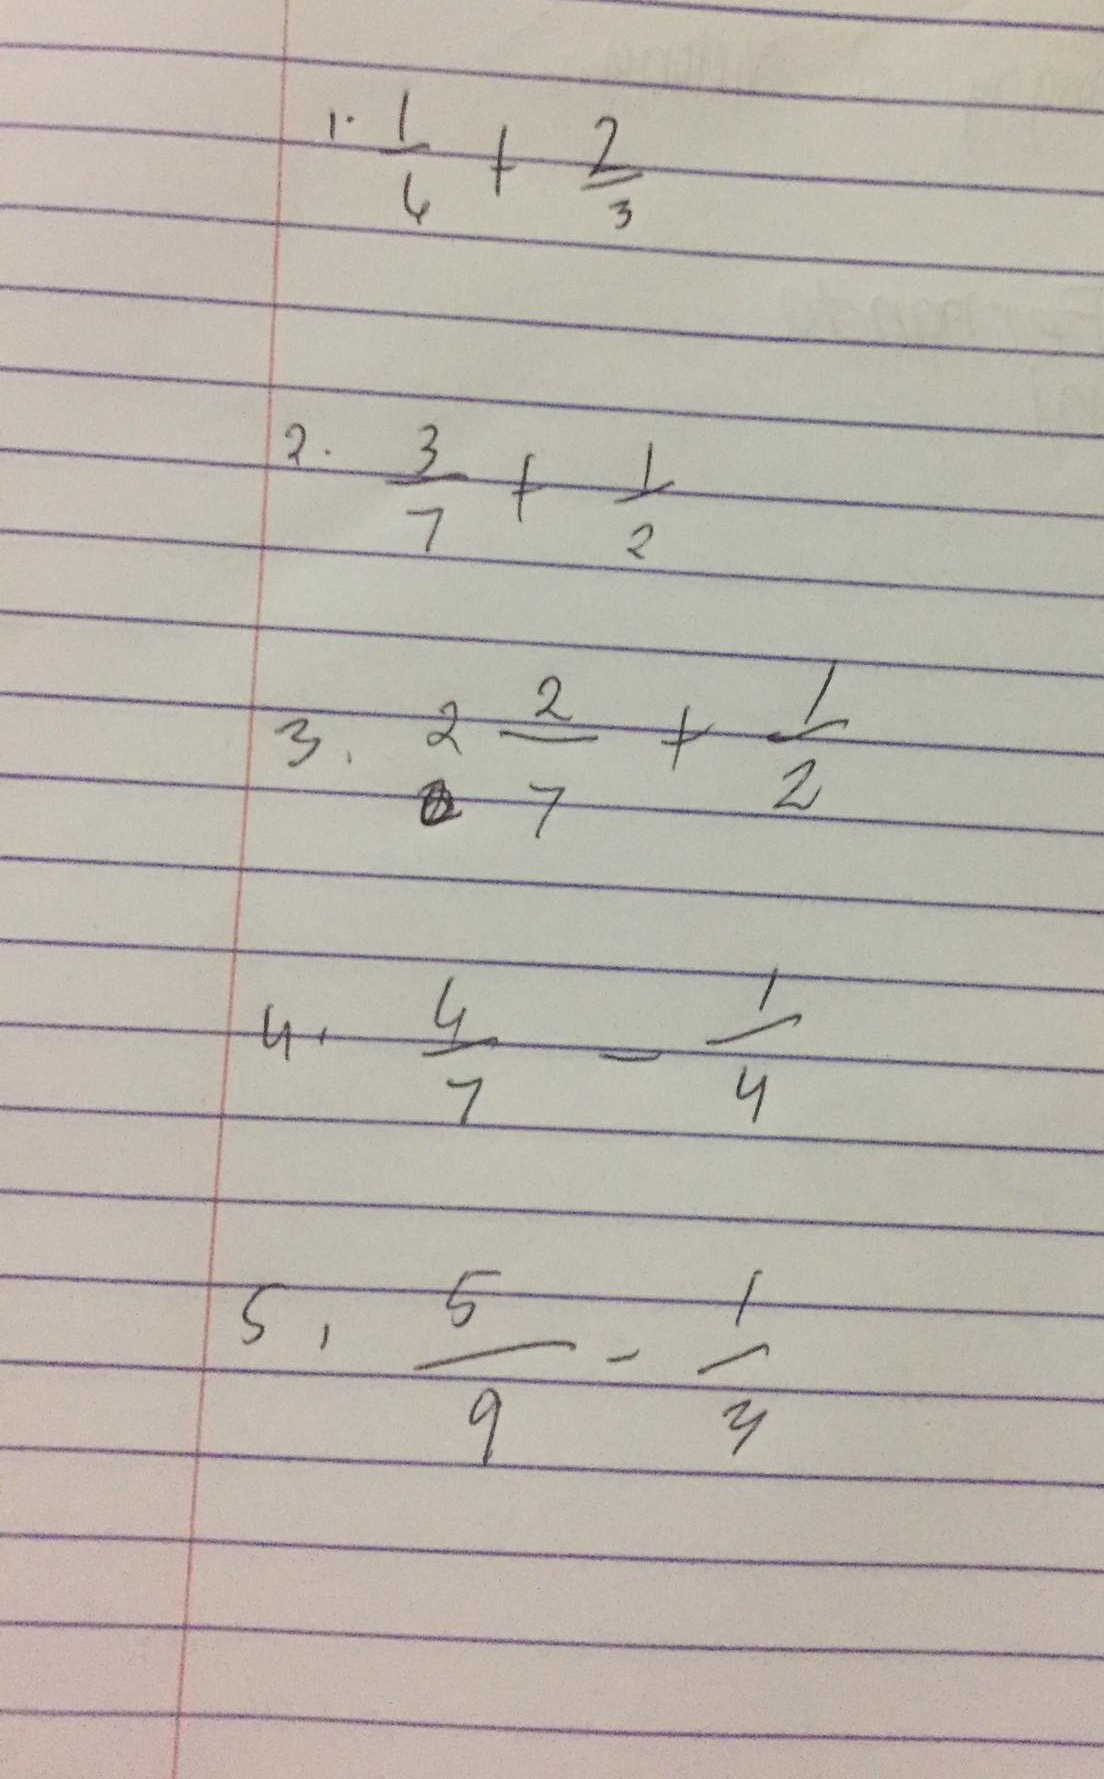 1. 1/4 + 2/3
2. 3/7 + 1/2
3. 2 2/7 + 1/2
4. 4/7 - 1/4
5. 5/9 - 1/3